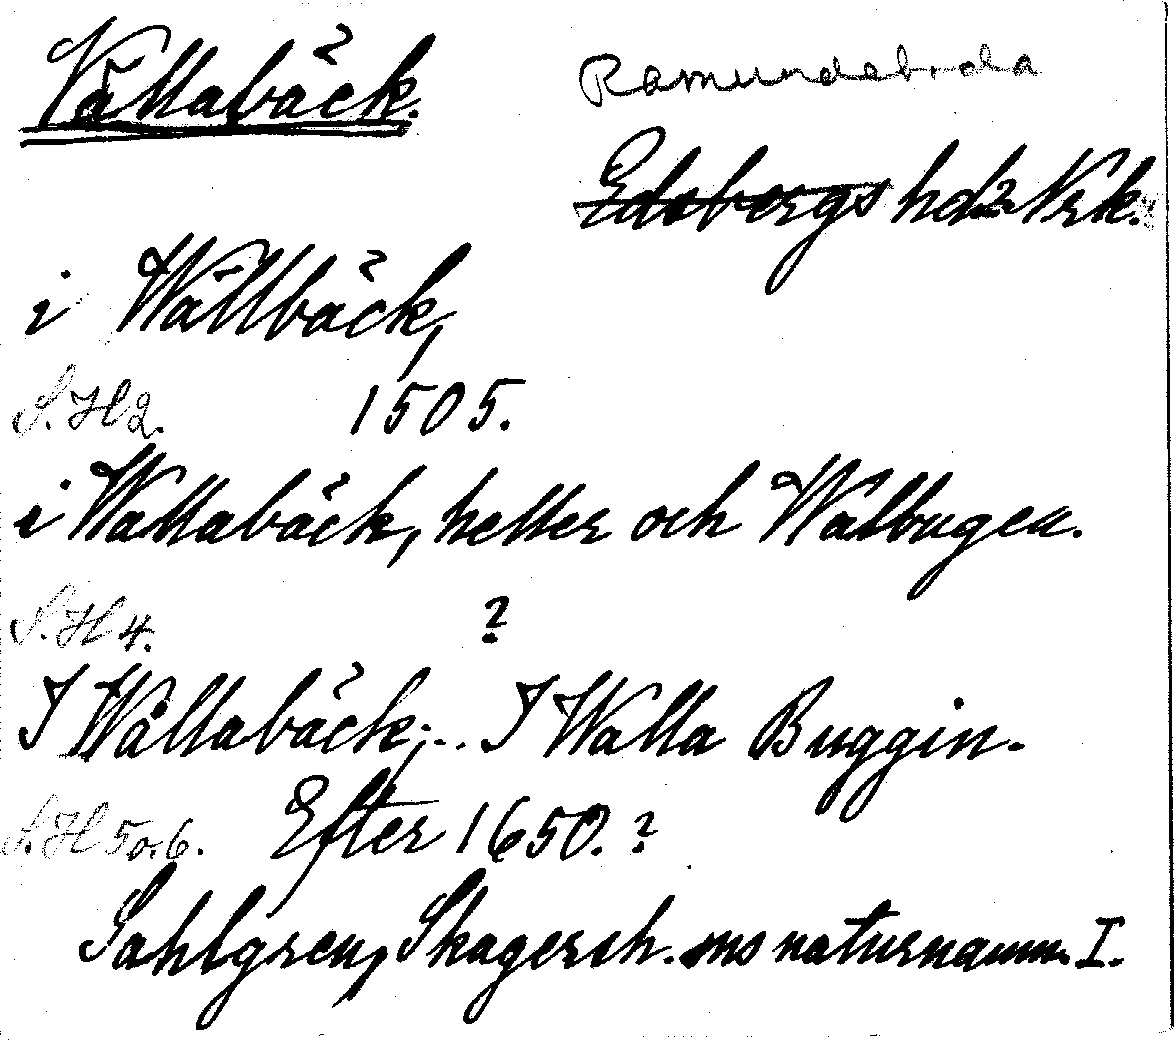 Vällabäck.
Ramundeboda
Edsbergs hd. Nrk.
i Wällbäck,
S.H 2. 1505.
i Wallabäck, heller och Walbugen.
S.H 4. ?
I Wållabäck; .. I Walla Buggin.
S.H 5 o. 6. Efter 1650. ?
Sahlgren, Skagersh. ms naturnamn. I.